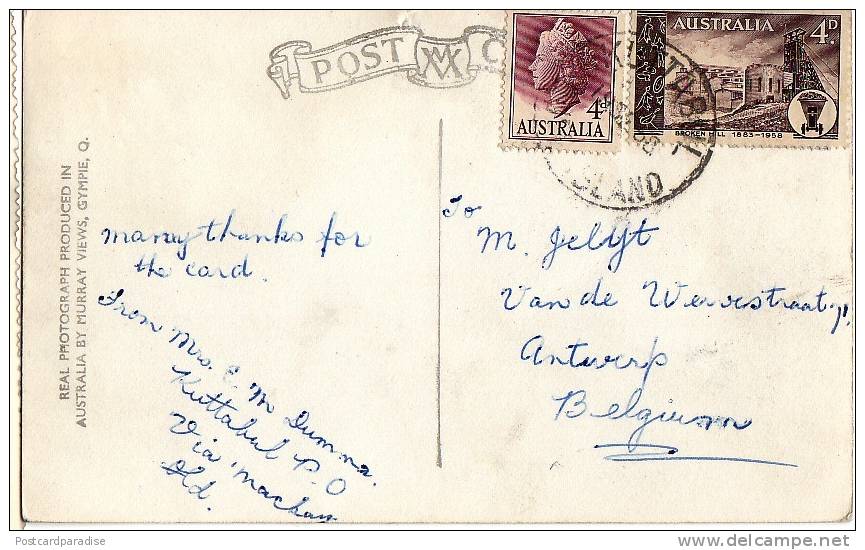 POST C
AUSTRALIA 4D
4D
AUSTRALIA
BROKEN HILL 1883-1958
KUTTABUL
ISLAND
REAL PHOTOGRAPH PRODUCED IN
AUSTRALIA BY MURRAY VIEWS, GYMPIE, Q.
many thanks for
the card.
From Mrs. E. M Dumma.
Kuttabul P.O
Via, Mackay
Qld.
To
M. Jelijt
Van de Wervestraat
Antwerp
Belgium
Postcardparadise
www.delcampe.net